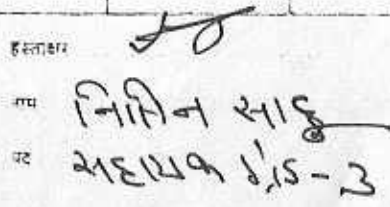 हस्ताक्षर
नाम नितिन साहू
पद सहायक ग्रेड-3